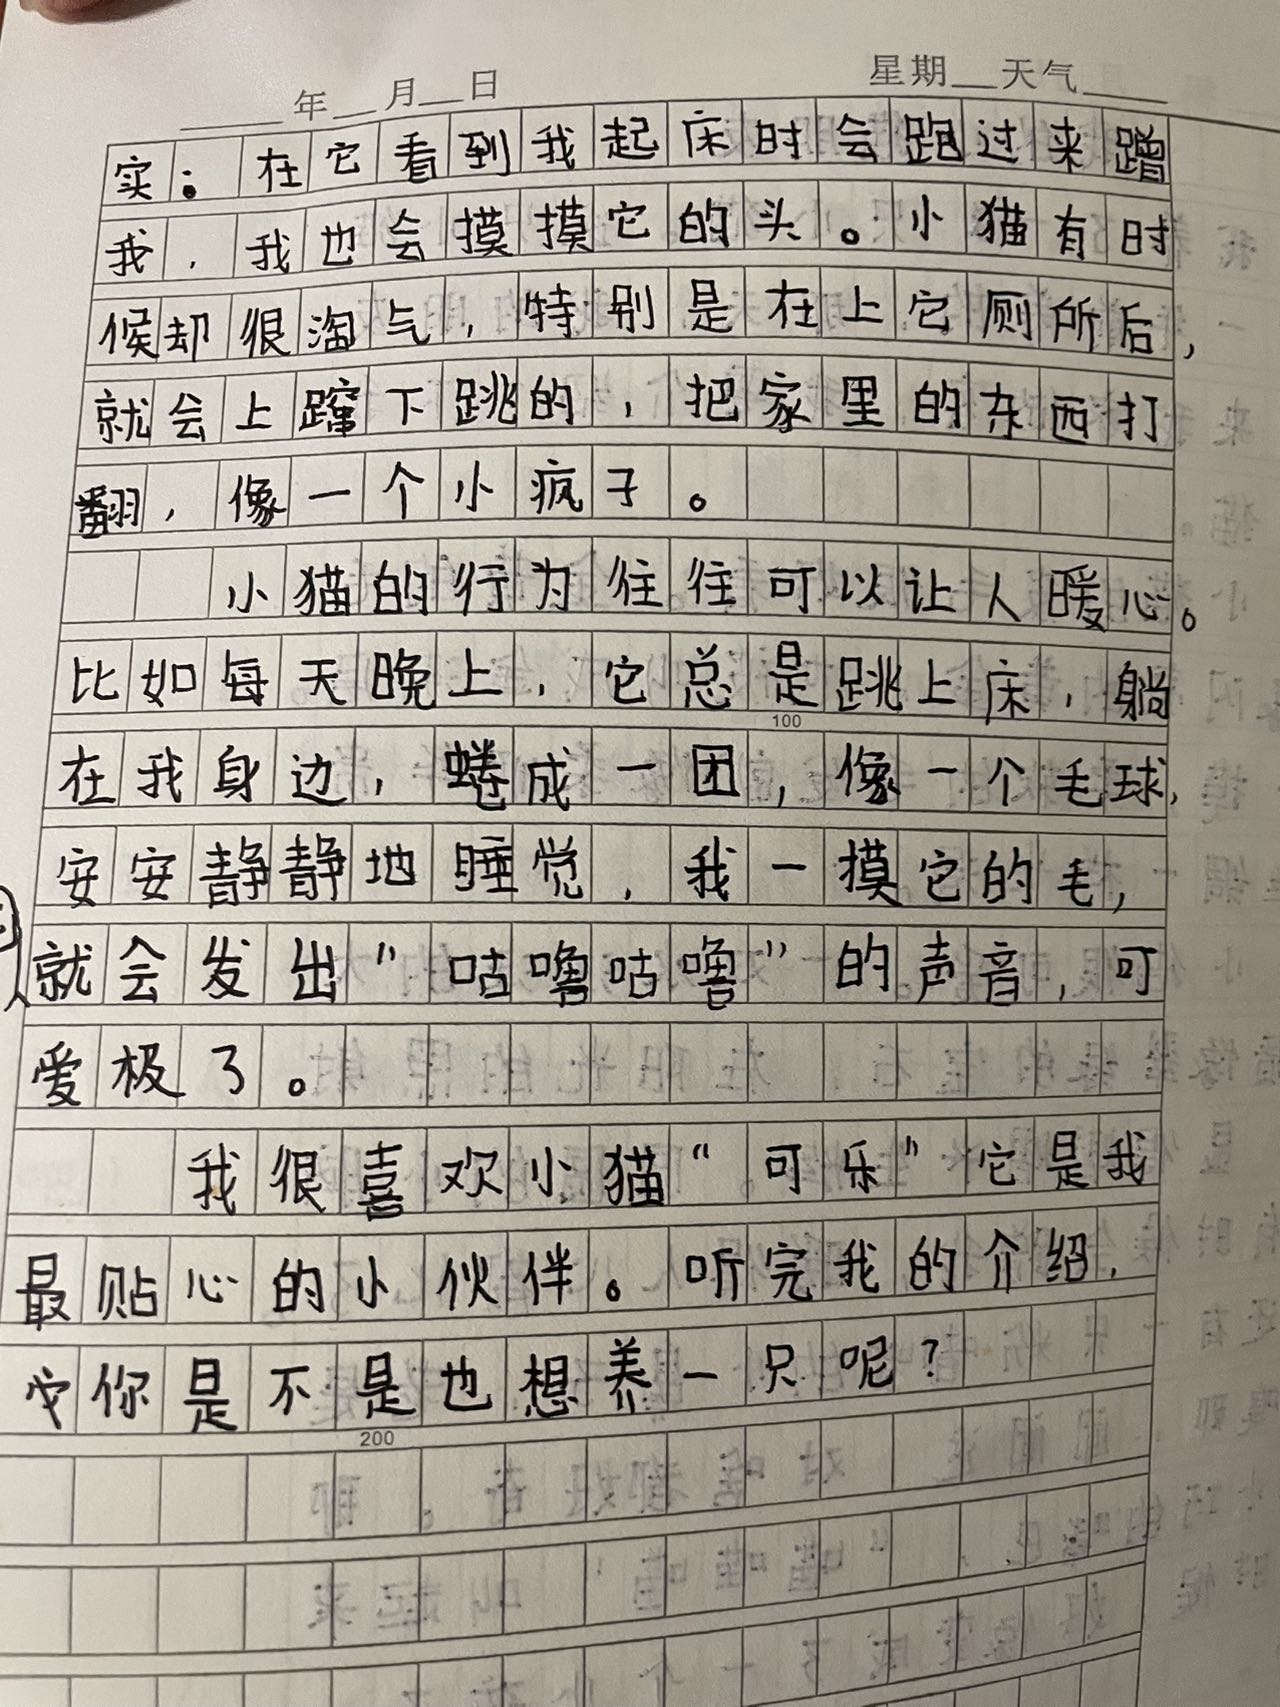 年 月 日 星期 天气
实：在它看到我起床时会跑过来蹭
我，我也会摸摸它的头。小猫有时
候却很淘气，特别是在上它厕所后，
就会上蹿下跳的，把家里的东西打
翻，像一个小疯子。
小猫的行为往往可以让人暖心。
比如每天晚上，它总是跳上床，躺
100
在我身边，蜷成一团，像一个毛球，
安安静静地睡觉，我一摸它的毛，
就会发出“咕噜咕噜”的声音，可
爱极了。
我很喜欢小猫“可乐”它是我
最贴心的小伙伴。听完我的介绍，
你是不是也想养一只呢？
200